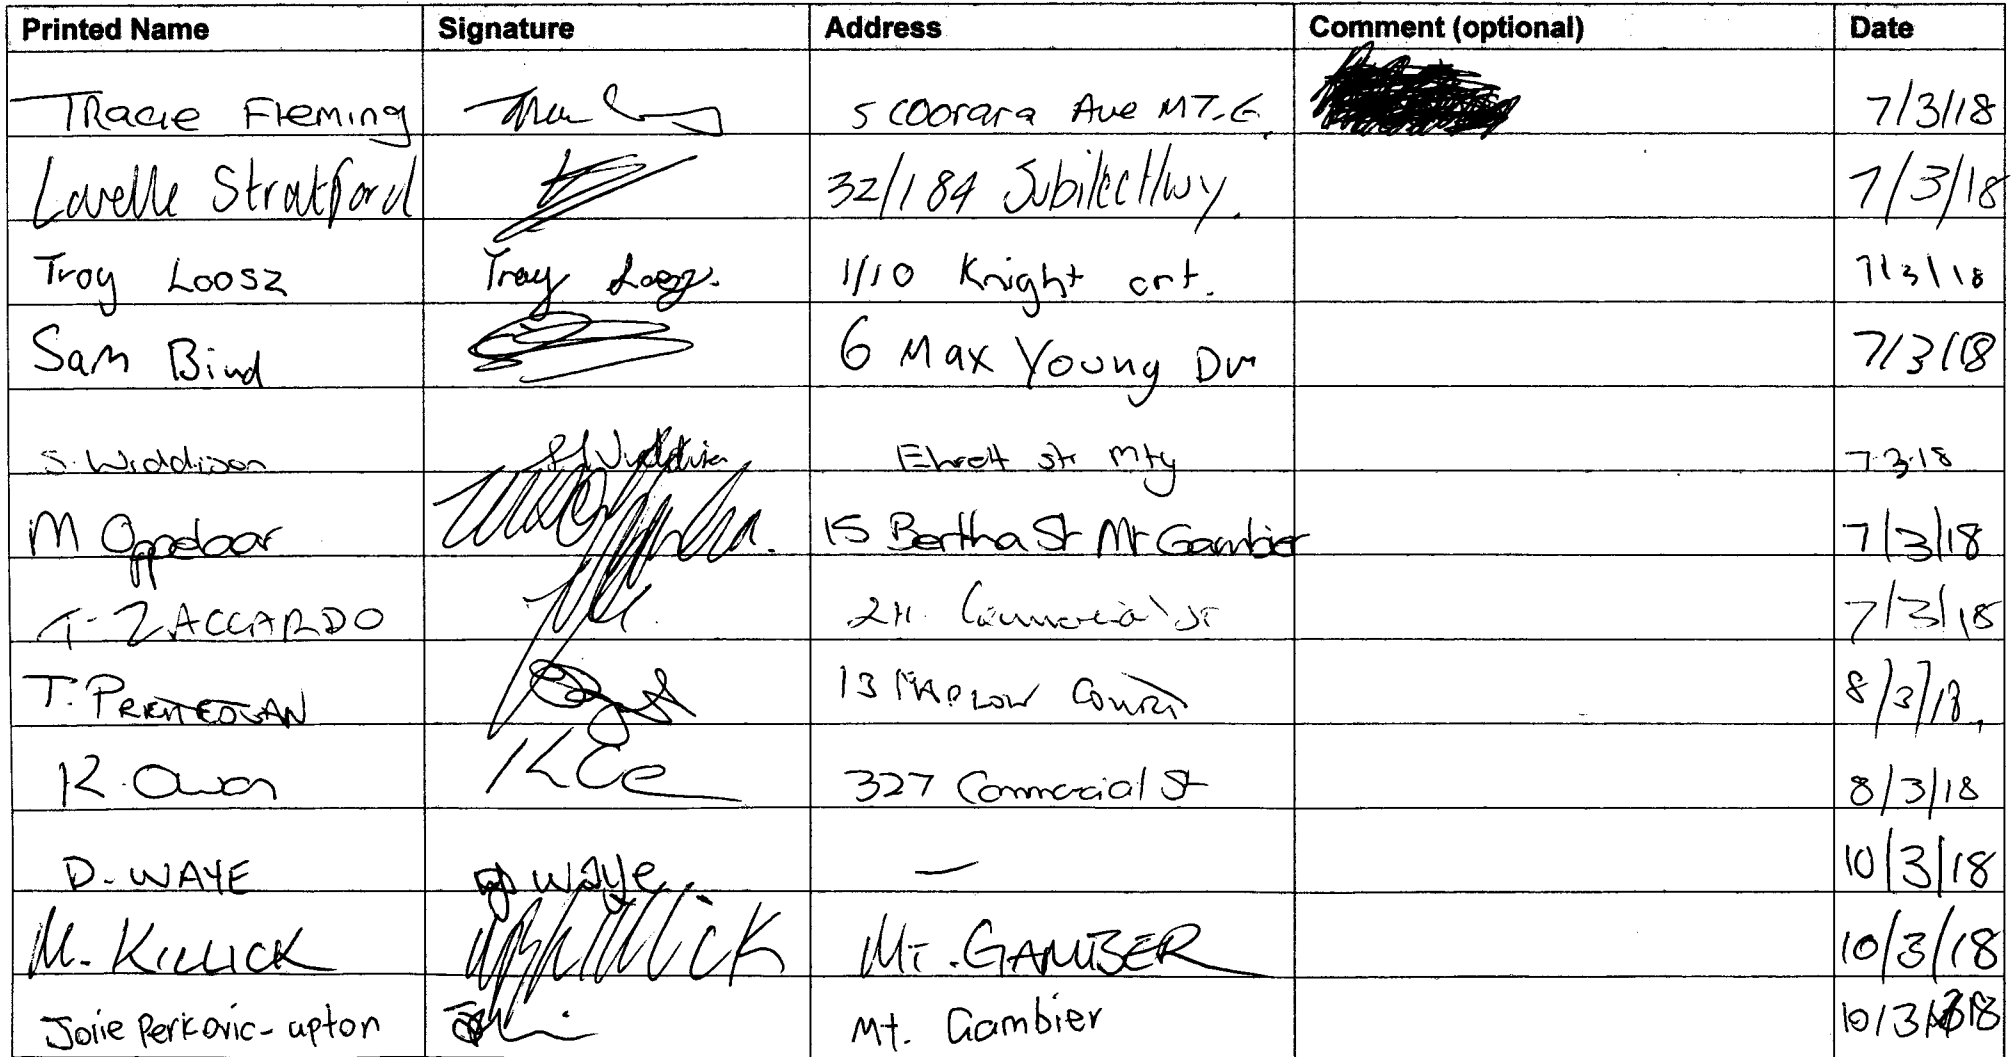 Printed Name Signature Address Comment (optional) Date
Tracie Fleming 5 Coorara Ave MT.G. 7/3/18
Lavelle Stratford 32/184 Jubilee Hwy. 7/3/18
Troy Loosz Troy Loosz. 1/10 Knight crt. 7/3/18
Sam Bird 6 Max Young Dr 7/3/18
S. Widdison S Widdison Ehrett str Mtg 7.3.18
M Oppelaar 15 Bertha St Mt Gambier 7/3/18
ZACCARDO 211. Commercial St 7/3/18
T. 13 MARLOW COURT 8/3/18.
K. Owen 327 Commercial St 8/3/18
D. WAYE D WAYE — 10/3/18
M. KILLICK M Killick MT. GAMBIER 10/3/18
Jolie Perkovic-upton Mt. Gambier 10/3/18